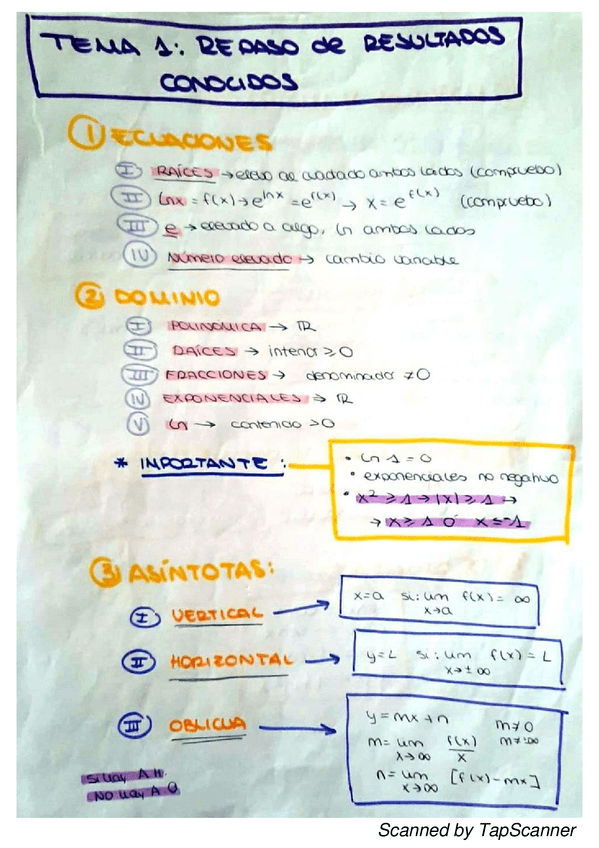 TEMA 1: REPASO de RESULTADOS
CONOCIDOS
① ECUACIONES
Ⓘ RAÍCES → elevo al cuadrado ambos lados (compruebo)
II lnx = f(x) → e^lnx = e^f(x) → x = e^f(x) (compruebo)
III e → elevado a algo, ln ambos lados
IV Número elevado → cambio variable
② DOMINIO
I POLINÓMICA → ℝ
II RAÍCES → interior ≥ 0
III FRACCIONES → denominador ≠ 0
IV EXPONENCIALES → ℝ
V Ln → contenido > 0
* IMPORTANTE:
• Ln 1 = 0
• exponenciales no negativo
• x² ≥ 1 → |x| ≥ 1 →
→ x ≥ 1 ó x ≤ -1
③ ASÍNTOTAS:
I VERTICAL → x=a si: lim f(x) = ∞
x→a
II HORIZONTAL → y=L si: lim f(x) = L
x→±∞
III OBLICUA → y = mx + n m≠0
m = lim f(x)/x m≠±∞
x→∞
n = lim [f(x) - mx]
x→∞
Si hay A H.
NO hay A O
Scanned by TapScanner